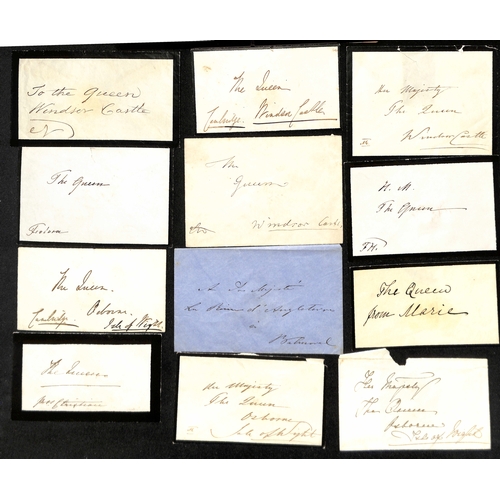 To the Queen
Windsor Castle
The Queen
Cambridge. Windsor Castle
Her Majesty
The Queen
Windsor Castle
The Queen
The
Queen
Windsor Cas.
H. M.
The Queen
The Queen.
Cambridge. Osborne.
Isle of Wight.
A Sa Majesté
La Reine d'Angleterre
à
Balmoral
The Queen
from Marie
The Queen
Her Majesty
The Queen
Osborne
Isle of Wight
Her Majesty
The Queen
Osborne
Isle of Wight